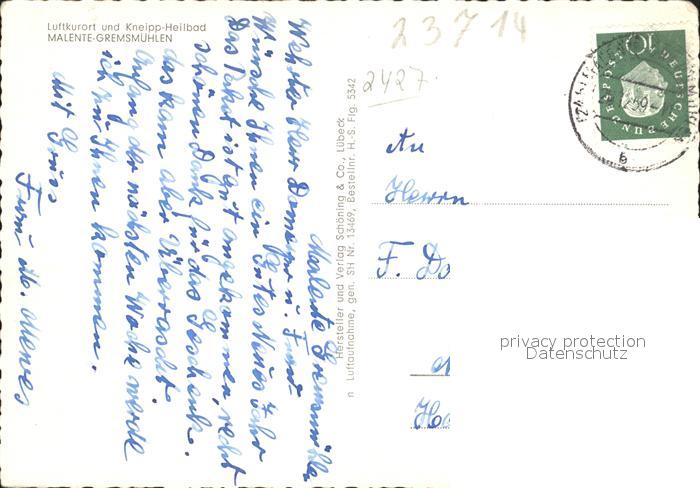 Luftkurort und Kneipp-Heilbad
MALENTE-GREMSMÜHLEN
23714
2427.
DEUTSCHE BUNDESPOST
10
59
b
Malente Gremsmühlen
Werter Herr u. Frau
Wünsche Ihnen ein gutes Neues Jahr
Das Paket ist gut angekommen, recht
schönen Dank für das Geschenk.
das kam aber Überrascht.
Anfang der nächsten Woche werde
ich zu Ihnen kommen.
Mit Gruss
Frau
Hersteller und Verlag Schöning & Co., Lübeck
n Luftaufnahme, gen. SH Nr. 13469, Bestellnr. H.-S. Flg. 5342
An
Herrn
F. Do
Ha
privacy protection
Datenschutz